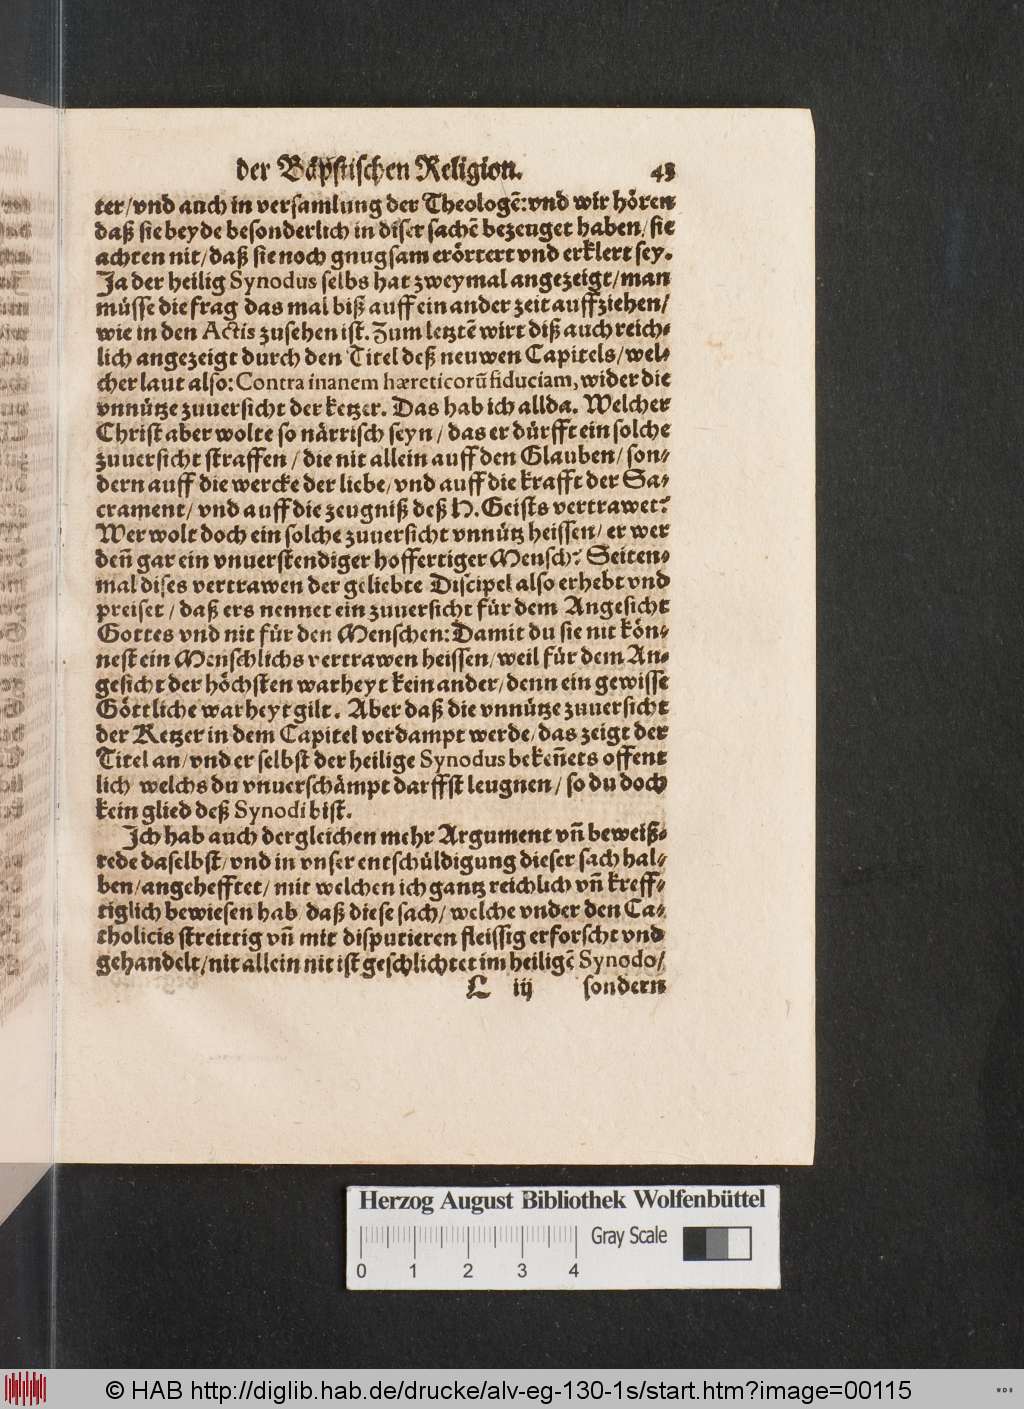 der Bäpstischen Religion. 43
ter/vnd auch in versamlung der Theologẽ: vnd wir hören
daß sie beyde besonderlich in diser sachẽ bezeuget haben/sie
achten nit/daß sie noch gnugsam erörtert vnd erklert sey.
Ja der heilig Synodus selbs hat zweymal angezeigt/man
müsse die frag das mal biß auff ein ander zeit auffziehen/
wie in den Actis zusehen ist. Zum letztẽ wirt diß auch reich⸗
lich angezeigt durch den Titel deß neuwen Capitels/wel⸗
cher laut also: Contra inanem hæreticorũ fiduciam, wider die
vnnütze zuuersicht der ketzer. Das hab ich allda. Welcher
Christ aber wolte so närrisch seyn/das er dürfft ein solche
zuuersicht straffen/die nit allein auff den Glauben/son⸗
dern auff die wercke der liebe/vnd auff die krafft der Sa⸗
crament/vnd auff die zeugniß deß H. Geists vertrawet?
Wer wolt doch ein solche zuuersicht vnnütz heissen/er wer
deñ gar ein vnuerstendiger hoffertiger Mensch? Seiten⸗
mal dises vertrawen der geliebte Discipel also erhebt vnd
preiset/daß ers nennet ein zuuersicht für dem Angesicht
Gottes vnd nit für den Menschen: Damit du sie nit kön⸗
nest ein Menschlichs vertrawen heissen/weil für dem An⸗
gesicht der höchsten warheyt kein ander/denn ein gewisse
Göttliche warheyt gilt. Aber daß die vnnütze zuuersicht
der Ketzer in dem Capitel verdampt werde/das zeigt der
Titel an/vnd er selbst der heilige Synodus bekeñets offent
lich welchs du vnuerschämpt darffst leugnen/so du doch
kein glied deß Synodi bist.
Ich hab auch dergleichen mehr Argument vñ beweiß⸗
rede daselbst/vnd in vnser entschüldigung dieser sach hal⸗
ben/angehefftet/mit welchen ich gantz reichlich vñ kreff⸗
tiglich bewiesen hab daß diese sach/welche vnder den Ca⸗
tholicis streittig vñ mit disputieren fleissig erforscht vnd
gehandelt/nit allein nit ist geschlichtet im heiligẽ Synodo/
L iij sondern
Herzog August Bibliothek Wolfenbüttel
Gray Scale
0 1 2 3 4
© HAB http://diglib.hab.de/drucke/alv-eg-130-1s/start.htm?image=00115